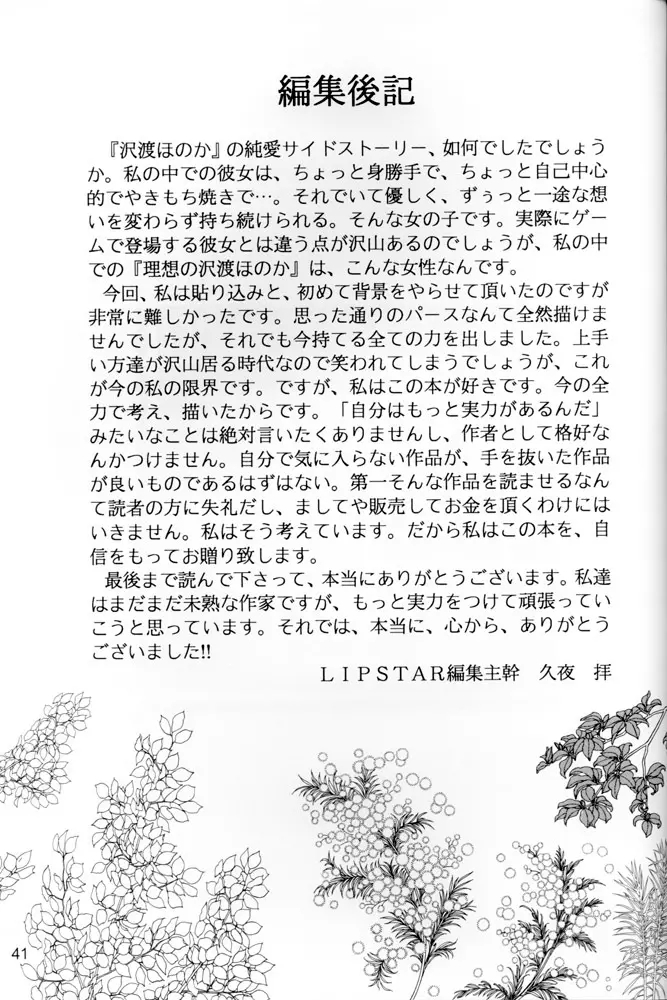 編集後記
『沢渡ほのか』の純愛サイドストーリー、如何でしたでしょう
か。私の中での彼女は、ちょっと身勝手で、ちょっと自己中心
的でやきもち焼きで…。それでいて優しく、ずぅっと一途な想
いを変わらず持ち続けられる。そんな女の子です。実際にゲー
ムで登場する彼女とは違う点が沢山あるのでしょうが、私の中
での『理想の沢渡ほのか』は、こんな女性なんです。
今回、私は貼り込みと、初めて背景をやらせて頂いたのですが
非常に難しかったです。思った通りのパースなんて全然描けま
せんでしたが、それでも今持てる全ての力を出しました。上手
い方達が沢山居る時代なので笑われてしまうでしょうが、これ
が今の私の限界です。ですが、私はこの本が好きです。今の全
力で考え、描いたからです。「自分はもっと実力があるんだ」
みたいなことは絶対言いたくありませんし、作者として格好な
んかつけません。自分で気に入らない作品が、手を抜いた作品
が良いものであるはずはない。第一そんな作品を読ませるなん
て読者の方に失礼だし、ましてや販売してお金を頂くわけには
いきません。私はそう考えています。だから私はこの本を、自
信をもってお贈り致します。
最後まで読んで下さって、本当にありがとうございます。私達
はまだまだ未熟な作家ですが、もっと実力をつけて頑張ってい
こうと思っています。それでは、本当に、心から、ありがとう
ございました!!
ＬＩＰＳＴＡＲ編集主幹　久夜　拝
41